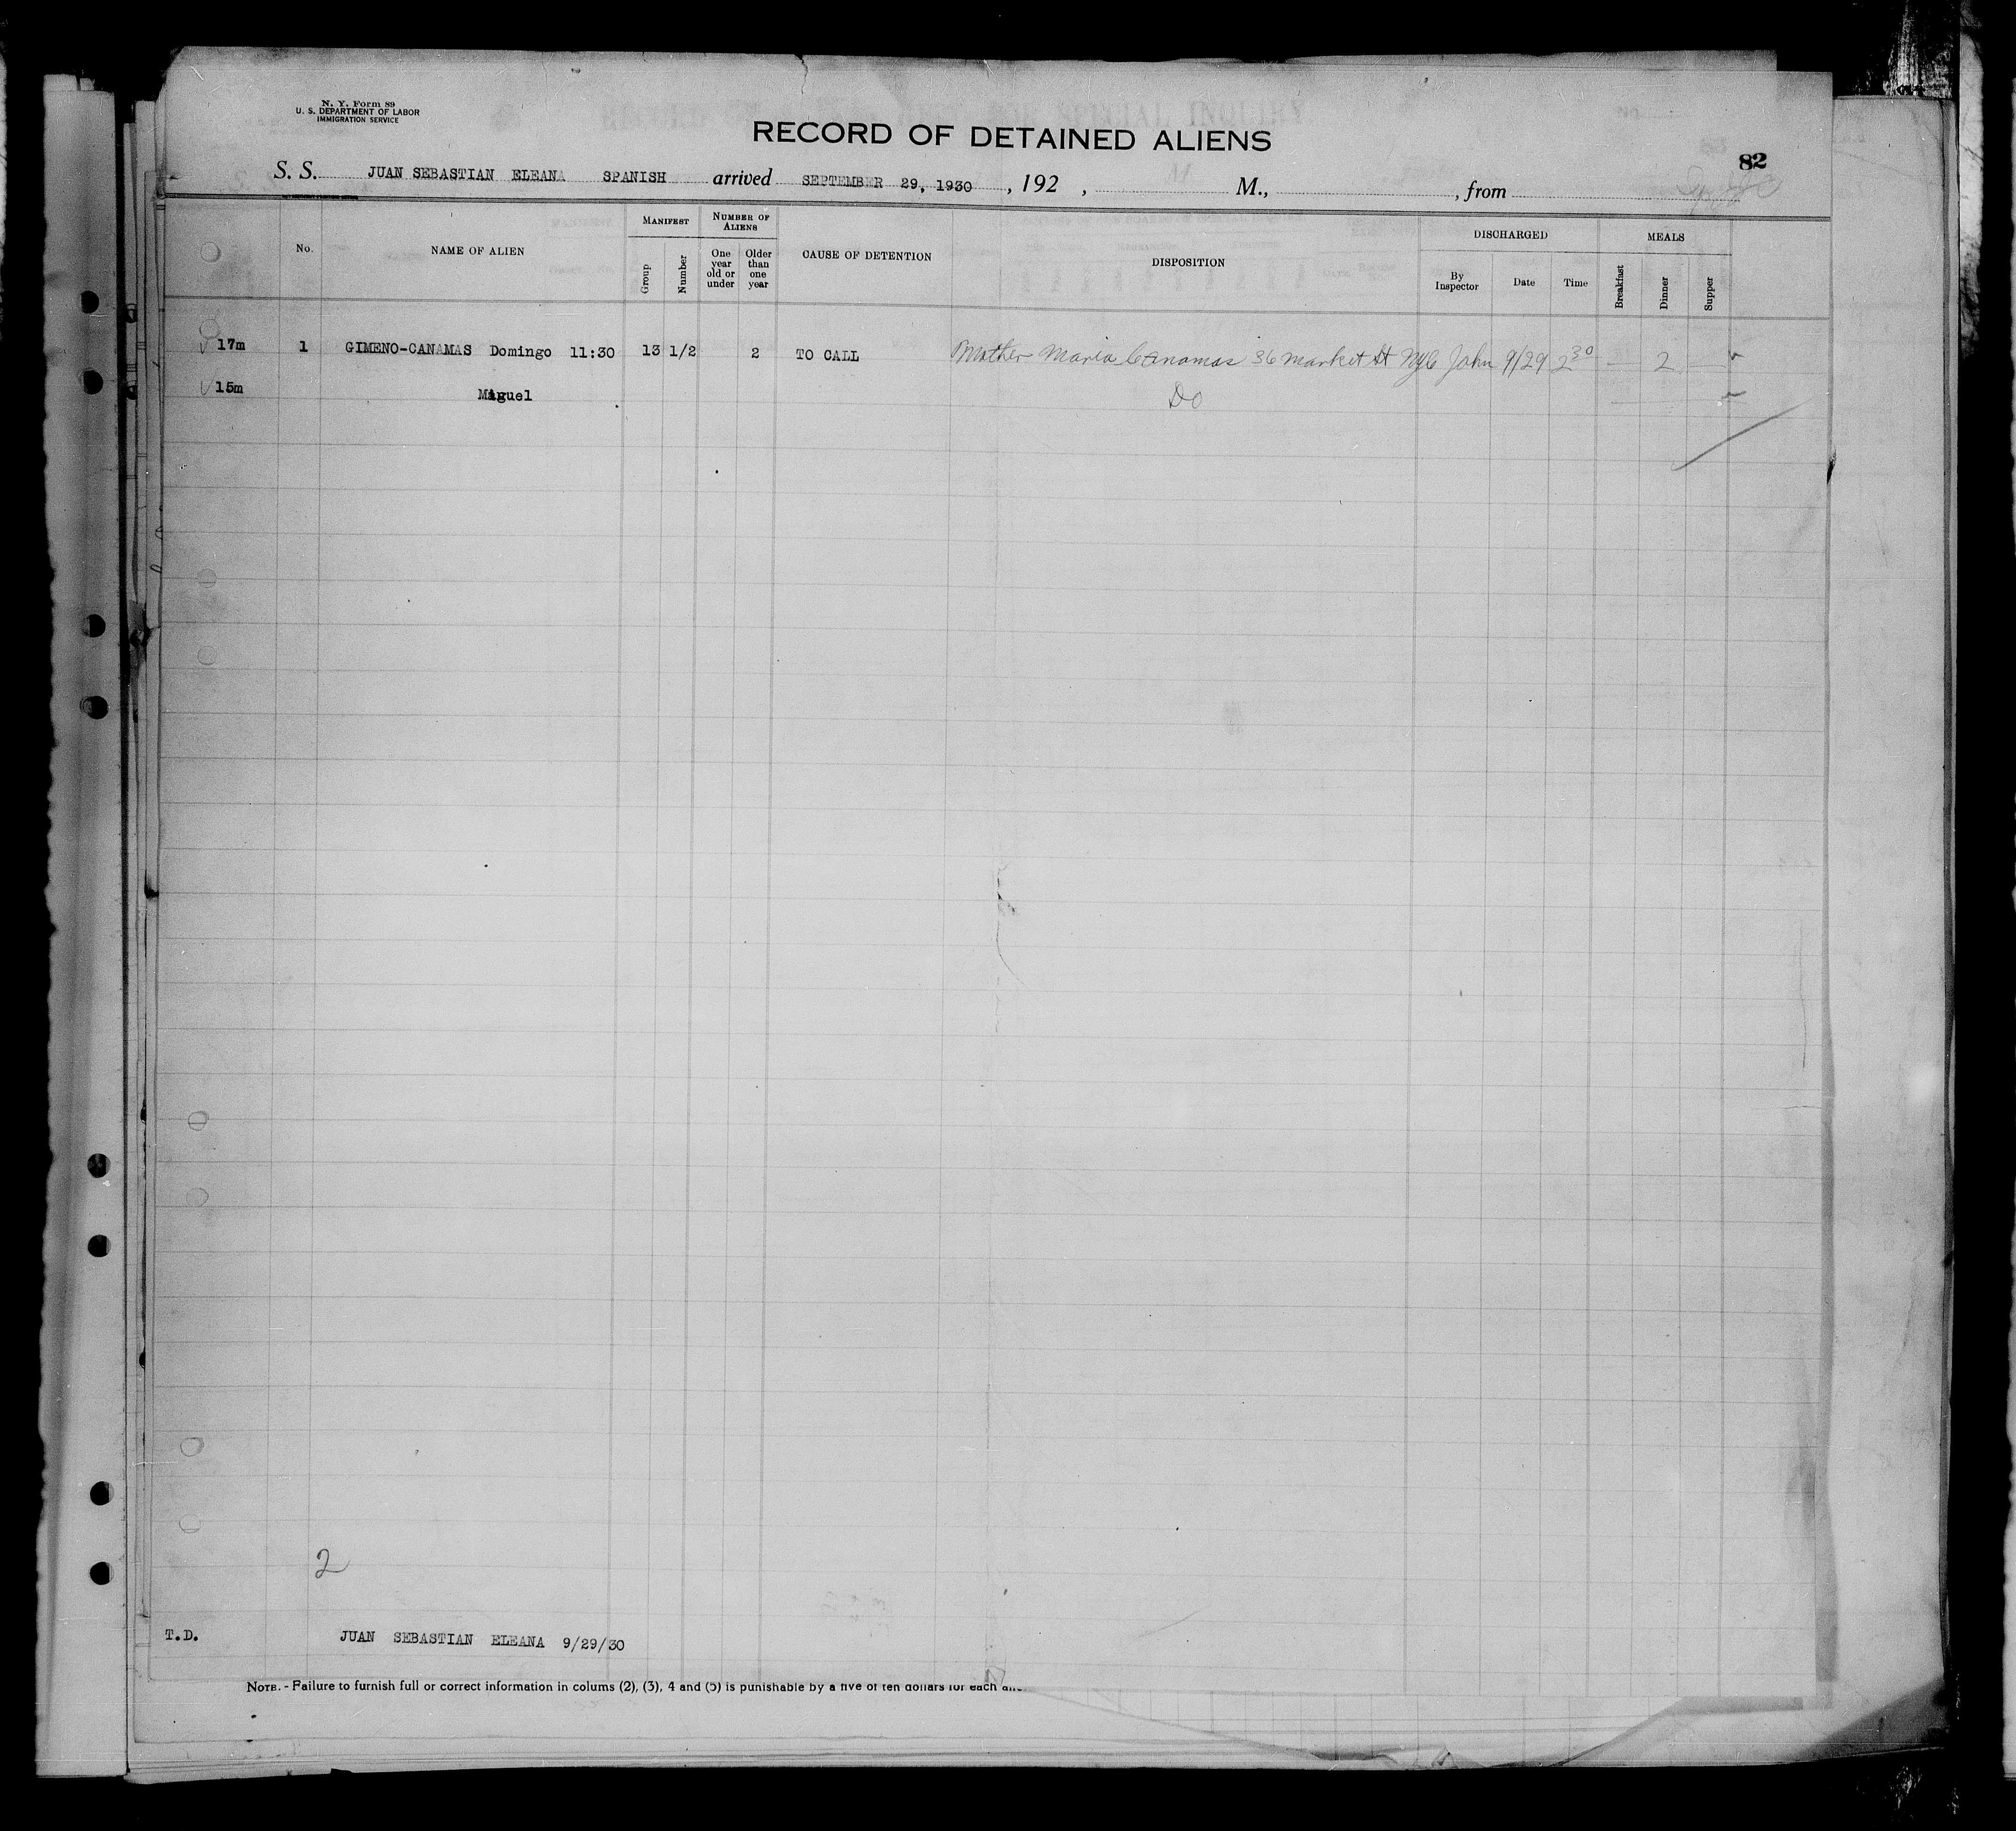 N. Y. Form 89
U. S. DEPARTMENT OF LABOR
IMMIGRATION SERVICE
RECORD OF DETAINED ALIENS
82
S. S. JUAN SEBASTIAN ELEANA SPANISH arrived SEPTEMBER 29, 1930 , 192 , M., , from
No. NAME OF ALIEN MANIFEST Group Number NUMBER OF ALIENS One year old or under Older than one year CAUSE OF DETENTION DISPOSITION DISCHARGED By Inspector Date Time MEALS Breakfast Dinner Supper
17m 1 GIMENO-CANAMAS Domingo 11:30 13 1/2 2 TO CALL Mother Maria Canamas 36 Market St NYC John 9/29 2 30 — 2 —
15m Miguel Do
2
T.D. JUAN SEBASTIAN ELEANA 9/29/30
NOTE. - Failure to furnish full or correct information in colums (2), (3), 4 and (5) is punishable by a five of ten dollars for each